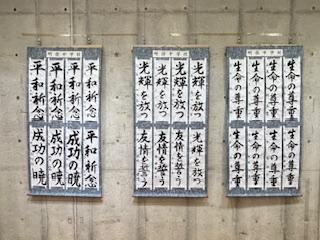 平和祈念
平和祈念
平和祈念
平和祈念
平和祈念
成功の暁
成功の暁
成功の暁
光輝を放つ
光輝を放つ
光輝を放つ
光輝を放つ
光輝を放つ
友情を誓う
友情を誓う
友情を誓う
生命の尊重
生命の尊重
生命の尊重
生命の尊重
生命の尊重
生命の尊重
生命の尊重
生命の尊重